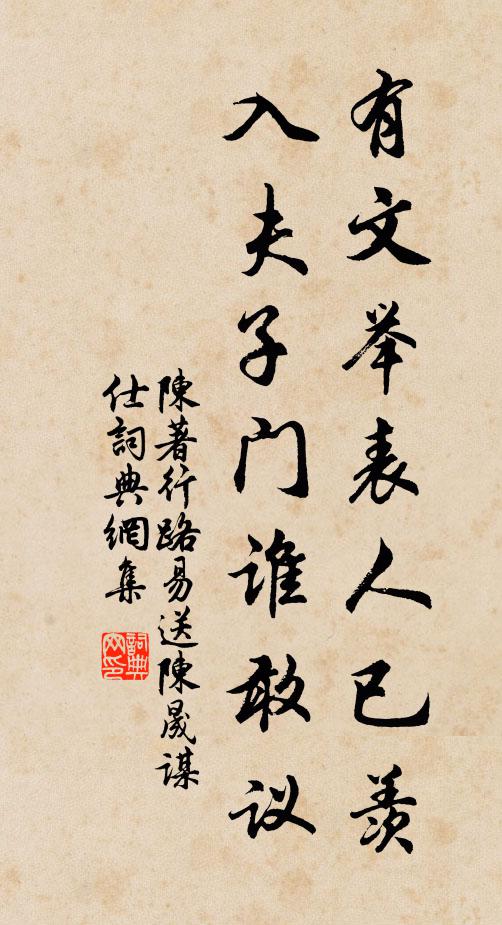 有文举表人已羨
入夫子门谁敢议
陳著行路易送陳晟謀
仕詞典網集
詞典网印